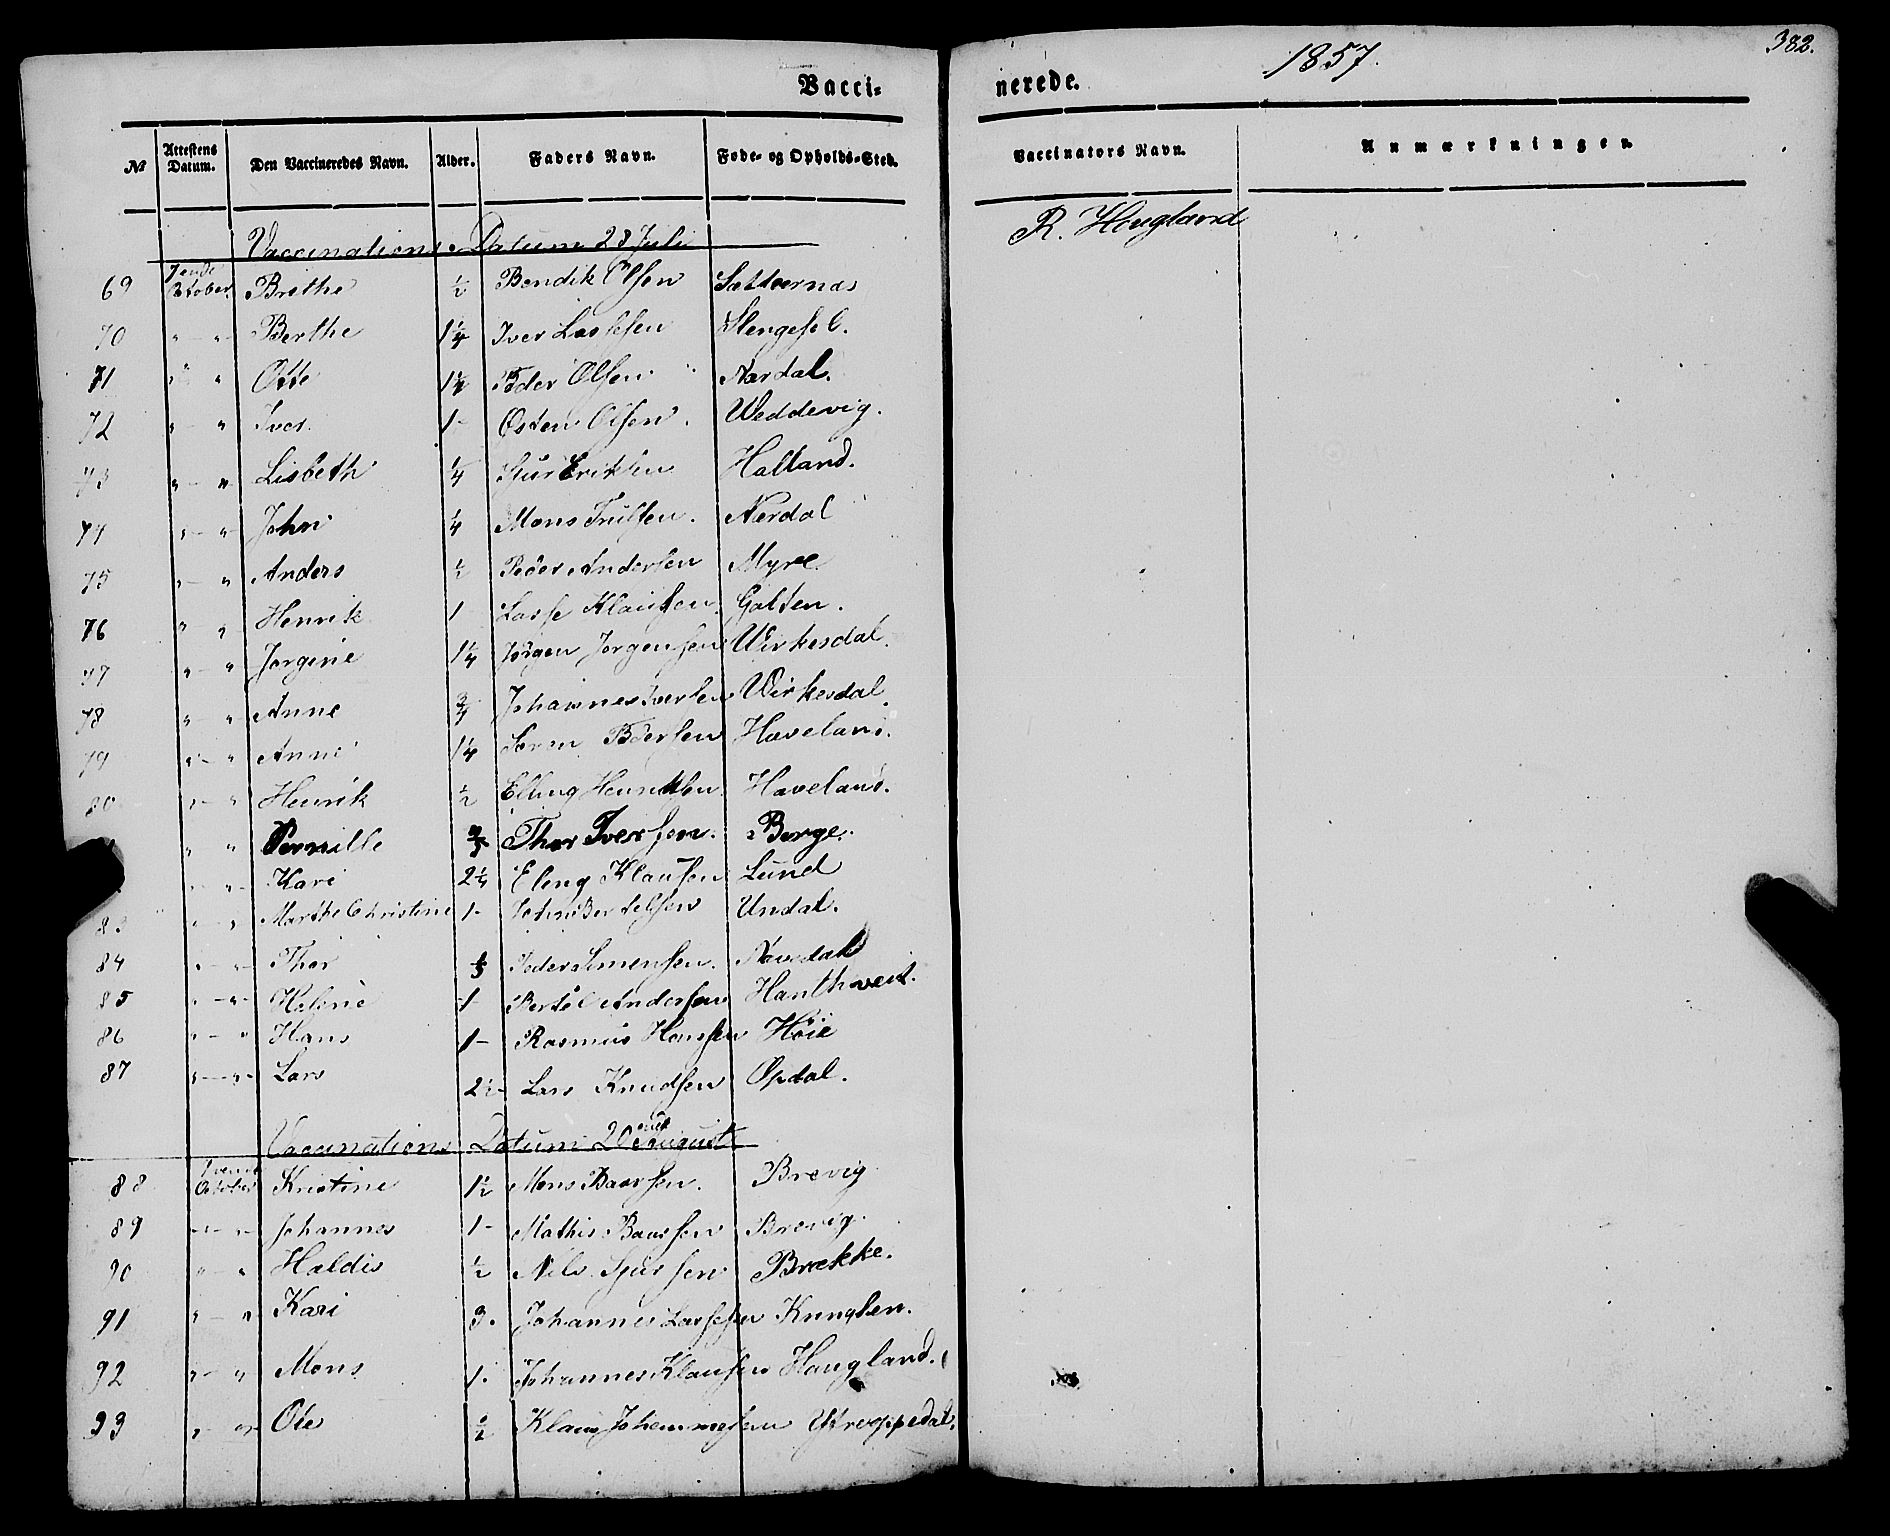 382.
1857.
Vacci- nerede.
№ Attestens Datum. Den Vaccineredes Navn. Alder. Faders Navn. Føde- og Opholds-Sted. Vaccinators Navn. Anmærkninger.
Vaccinations-Datum 28 Juli R. Hougland
69 October Brithe ½ Bendik Olsen Sætternæs
70 " - " - Berthe 1¼ Iver Lassesen Slengesol.
71 " " Otte 1½ Peder Olsen Nærdal.
72 " - " Iver. 1 - Østen Olsen. Weddevig.
73 " - " Lisbeth ¼ Sjur Eriksen Halland.
74 " - " John ¼ Mons Trulsen. Nærdal
75 " - " Anders ½ Peder Andersen Myre
76 " - " Henrik 1 - Lasse Klausen. Galten.
77 " - " Jørgine 1¼ Jørgen Jørgensen Wirkesdal.
78 " - " Anne ¾ Johannes Iversen Wirkesdal.
79 " - " Anne 1¼ Søren Pedersen Haveland.
80 " - " Henrik ½ Elling Henriksen Haveland.
" " Pernille Thor Iversen. Berge.
" - " - Kari 2¼ Eling Klausen Lund
83 " - " Marthe Christine 1 - John Bertelsen Undal.
84 " - " - Thor Peder Simensen. Navedal
85 " - " - Helene 1 Bertel Andersen Hanthveit.
86 " - " Hans 1 - Rasmus Hansen Høie
87 " - " - Lars 2½ - Lars Knudsen Opdal.
Vaccinations Datum 20 August
88 October Kristine 1½ Mons Baarsen. Brevig
89 " - " - Johannes 1 - Mathis Baarsen Brevig.
90 " - " Haldis ½ Nils Sjursen Brekke.
91 " - " Kari 3. Johannes Larsesen Kunglen.
92 " - " Mons 1. Johannes Klausen Haugland.
93 " - " Ole ½ Klaus Johannesen Ytreoppedal.